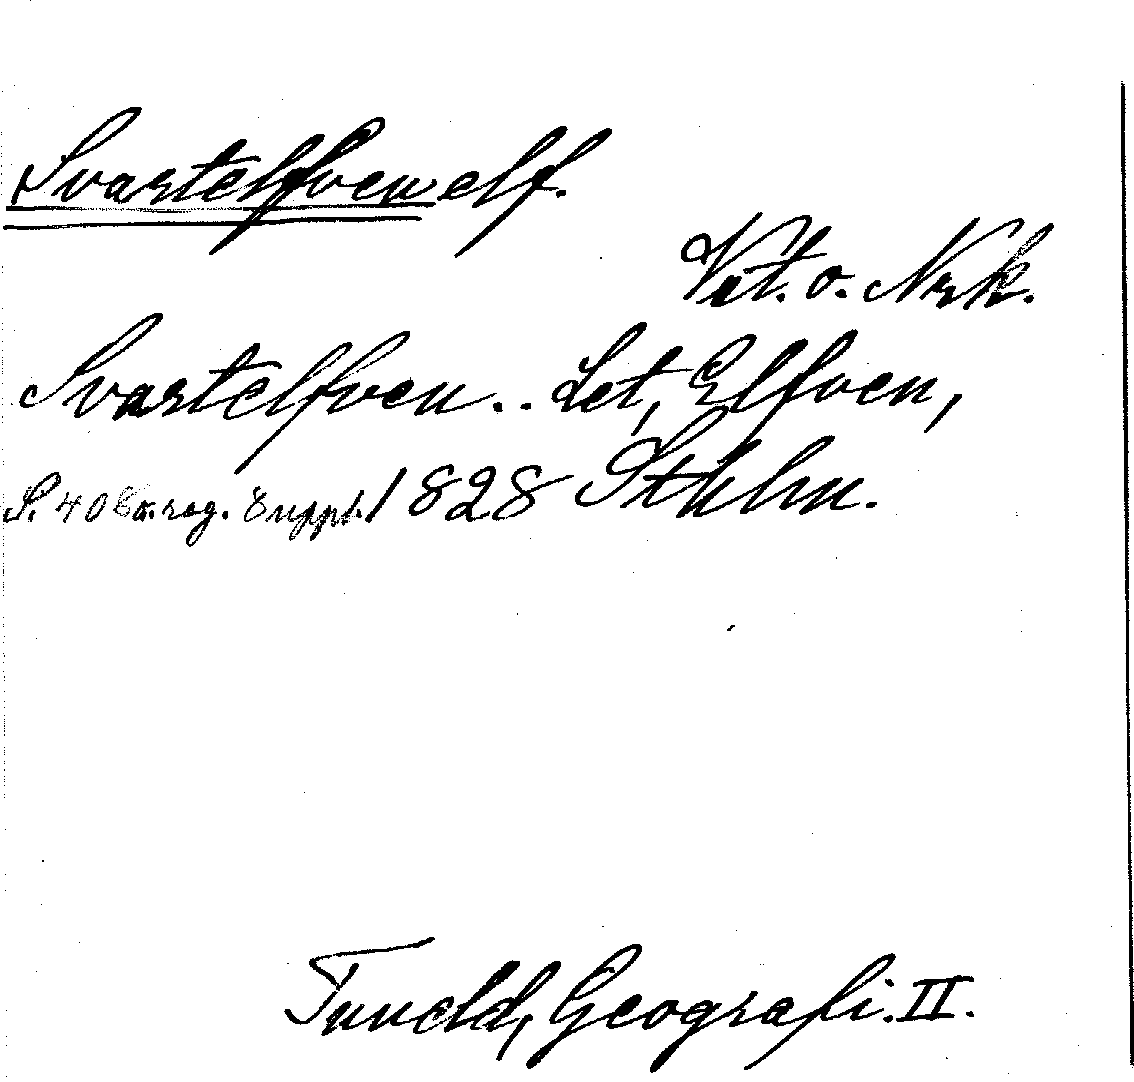 Svartelfven elf.
Vet. o. Nrk.
Svartelfven.. Let, Elfven,
S. 408 a. reg. Suppl. 1828 Sthlm.
Tuneld, Geografi. II.